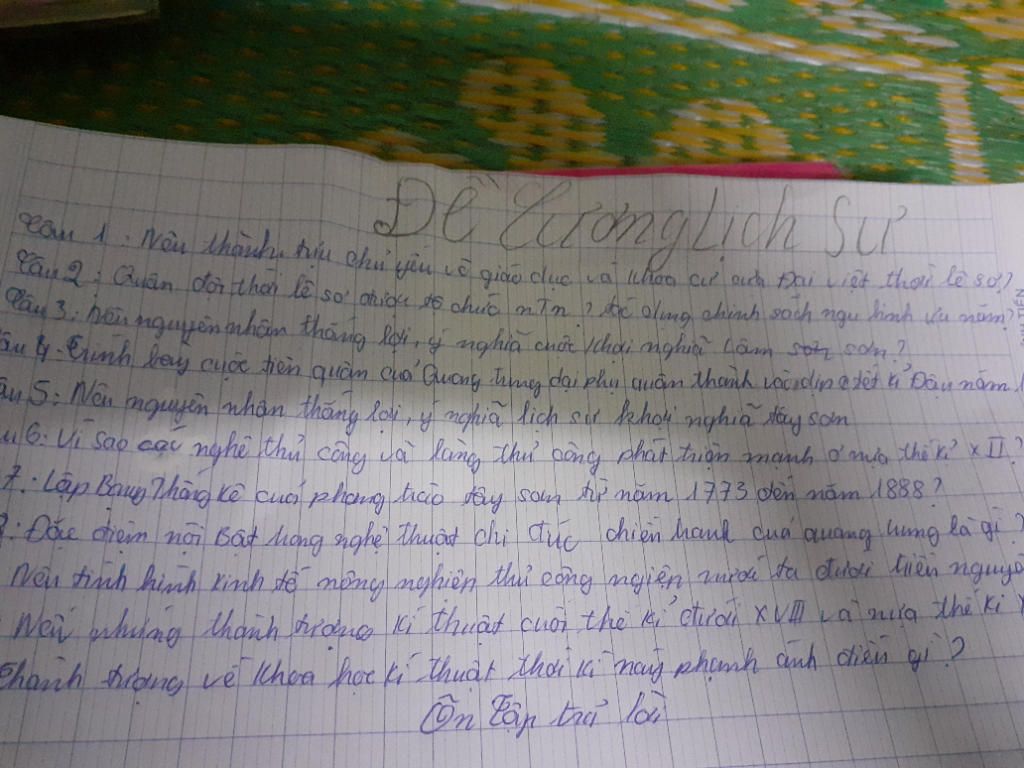 Đề Cương Lịch Sử
Câu 1: Nêu thành tựu chủ yếu về giáo dục và khoa cử của Đại việt thời lê sơ?
Câu 2: Quân đội thời lê sơ được tổ chức ntn? tác dụng chính sách ngụ binh ư nông?
Câu 3: Nêu nguyên nhân thắng lợi, ý nghĩa cuộc khởi nghĩa Lam sơn?
âu 4. trình bày cuộc tiến quân của Quang trung đại phá quân thanh vào dịp tết kỉ Đậu năm
âu 5: Nêu nguyên nhân thắng lợi, ý nghĩa lịch sử khởi nghĩa tây sơn
u 6: Vì sao các nghề thủ công và làng thủ công phát triển mạnh ở nửa thế kỉ XII?
7: Lập Bảng Thống kê của phong trào tây sơn từ năm 1773 đến năm 1888?
: Đặc điểm nổi Bật trong nghệ thuật chỉ đạo chiến tranh của quang trung là gì?
Nêu tình hình kinh tế nông nghiệp thủ công ngiệp nước ta dưới triều nguyễ
Nêu những thành tượng kĩ thuật cuối thế kỉ dưới XVIII và nửa thế kỉ
thành tượng về khoa học kĩ thuật thời kì này phạnh ánh điều gì?
Ôn tập trả lời